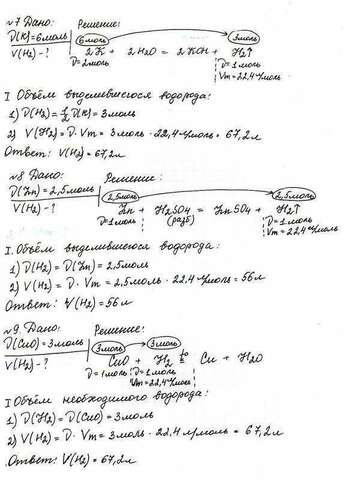 №7 Дано: Решение:
D(K)=6моль 6моль 3моль
V(H2)-? 2K + 2H2O = 2KOH + H2↑
D=2моль D=1моль
Vm=22,4л/моль
I Объём выделившегося водорода:
1) D(H2)=1/2 D(K)=3моль
2) V(H2)=D·Vm=3моль·22,4л/моль=67,2л
Ответ: V(H2)=67,2л
№8 Дано: Решение:
D(Zn)=2,5моль 2,5моль 2,5моль
V(H2)-? Zn + H2SO4 = ZnSO4 + H2↑
D=1моль (разб) D=1моль
Vm=22,4л/моль
I. Объём выделившегося водорода:
1) D(H2)=D(Zn)=2,5моль
2) V(H2)=D·Vm=2,5моль·22,4л/моль=56л
Ответ: V(H2)=56л
№9. Дано: Решение:
D(CuO)=3моль 3моль 3моль
V(H2)-? CuO + H2 t° = Cu + H2O
D=1моль D=1моль
Vm=22,4л/моль
I Объём необходимого водорода:
1) D(H2)=D(CuO)=3моль
2) V(H2)=D·Vm=3моль·22,4л/моль=67,2л
Ответ: V(H2)=67,2л